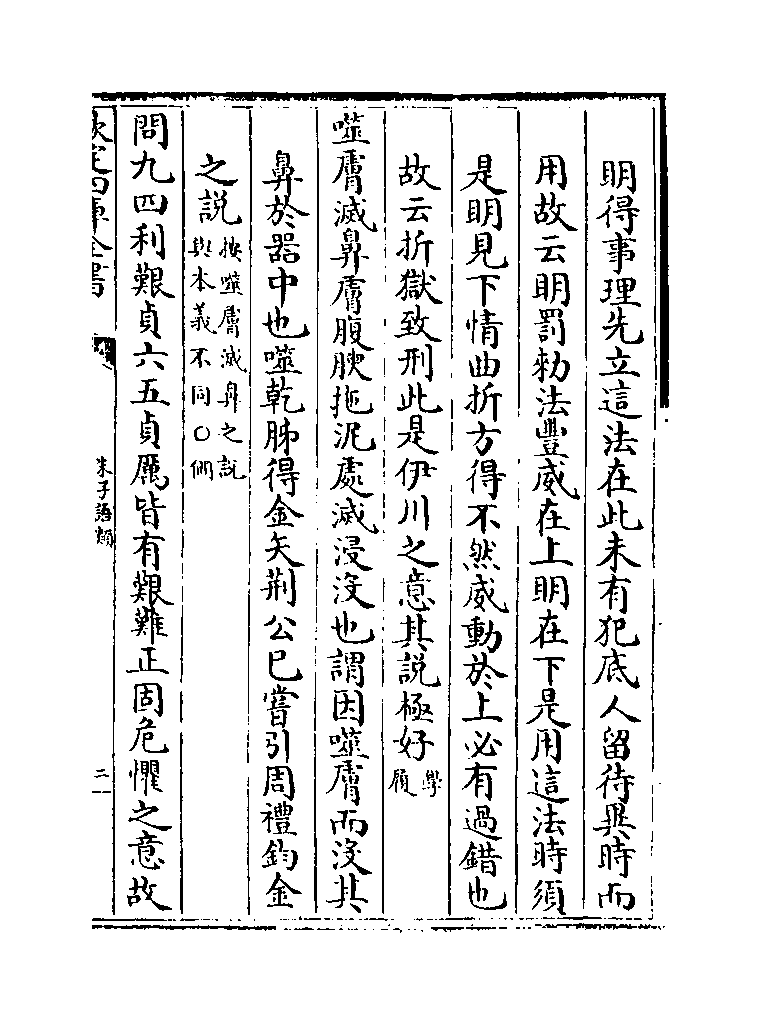 明得事理先立這法在此未有犯底人留待異時而
用故云明罰勑法豐威在上明在下是用這法時須
是明見下情曲折方得不然威動於上必有過錯也
故云折獄致刑此是伊川之意其説極好學履
噬膚滅鼻膚腹腴拖泥處滅浸沒也謂因噬膚而沒其
鼻於器中也噬乾胏得金矢荆公已嘗引周禮鈞金
之説按噬膚滅鼻之説與本義不同〇㽦
問九四利艱貞六五貞厲皆有艱難正固危懼之意故
欽定四庫全書
朱子語類
二